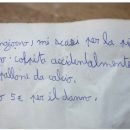 ngiorno, mi scusi per la pi
o colpito accidentalmente
pallone da calcio.
o 5€ per il danno.